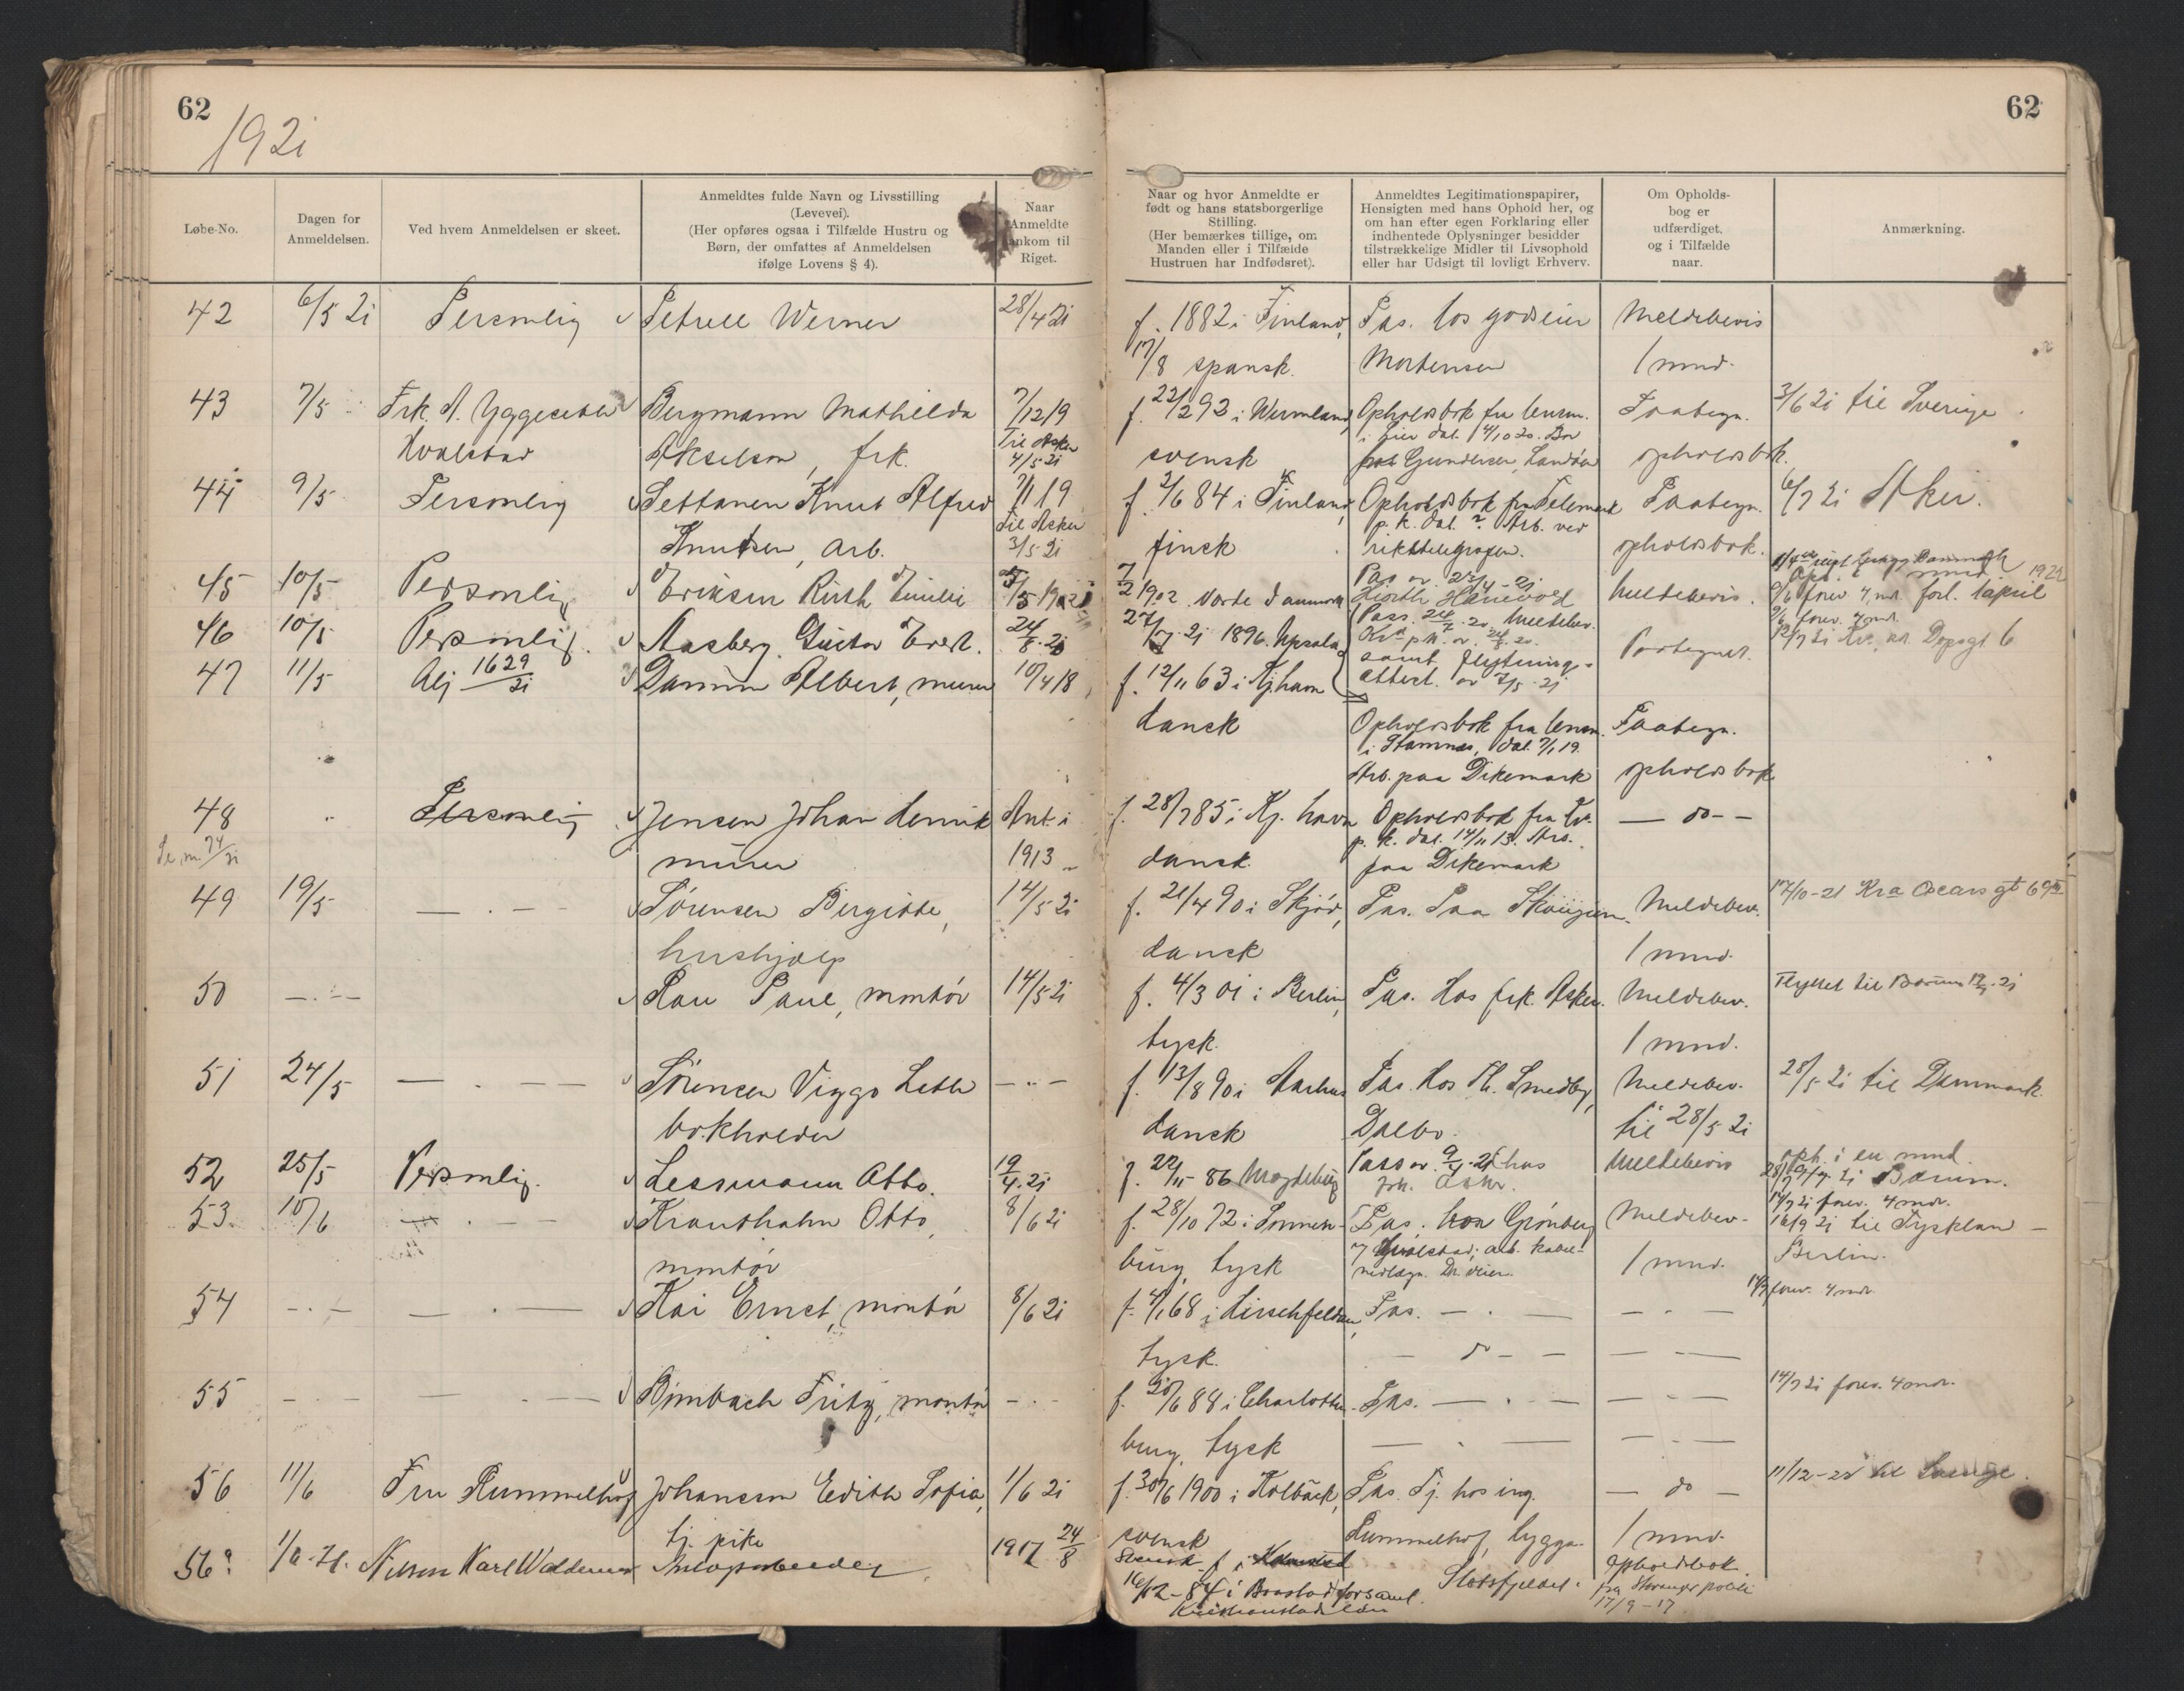 62
1921
62
Løbe-No.
Dagen for
Anmeldelsen.
Ved hvem Anmeldelsen er skeet.
Anmeldtes fulde Navn og Livsstilling
(Levevei).
(Her opføres ogsaa i Tilfælde Hustru og
Børn, der omfattes af Anmeldelsen
ifølge Lovens § 4).
Naar
Anmeldte
ankom til
Riget.
Naar og hvor Anmeldte er
født og hans statsborgerlige
Stilling.
(Her bemærkes tillige, om
Manden eller i Tilfælde
Hustruen har Indfødsret).
Anmeldtes Legitimationspapirer,
Hensigten med hans Ophold her, og
om han efter egen Forklaring eller
indhentede Oplysninger besidder
tilstrækkelige Midler til Livsophold
eller har Udsigt til lovligt Erhverv.
Om Opholds-
bog er
udfærdiget,
og i Tilfælde
naar.
Anmærkning.
42 6/5 21 Personlig Petrell Werner 28/4 21 f. 1882 i Finland, Pas. Hos godseier Meldebevis
17/8 spansk. Mortensen 1 mnd.
43 7/5 Frk. A. Yggeseth Bergmann Mathilda 7/12 19 f. 22/2 92 i Wermland, Opholdsbok fra lensm. Paategn. 3/6 21 til Sverige
Hvalstad Akselson, frk. Til Asker 4/5 21 svensk i Lier dat. 14/10 20. Bor Gundersen, Landøen opholdsbok.
44 9/5 Personlig Settanen Knut Alfred 7/1 19 f. 2/6 84 i Finland, Opholdsbok fra Telemark Paategn. 6/7 21 Aker.
Knutsen, arb. Til Asker 3/5 21 finsk p. k. dat. ? Arb. ved rikstelegrafen. opholdsbok.
45 10/5 Personlig Eriksen Ruth Emilie 1902 Varde Danmark Pas av 23/4 - 21 Meldebevis. 9/6 forev 4 md. forl. 1 april 1922
46 10/5 Personlig. Aasberg. Gustav Evert. 24/8. 20 21 1896. Upsala Pass. 24/7 20. Meldebev. Kra p.k. av 24/8 20. Paategnet. 9/6 forev. 4 mdr.
samt flytnings-
attest. av 7/5 - 21
47 11/5 Alj 1629/21 Damm Albert, murer 10/4 18 f. 12/11 63 i Kj.havn
dansk Opholdsbok fra lensm. Paategn.
i Stamnes, dat. 7/1 19.
Arb. paa Dikemark opholdsbok
48 Personlig Jensen Johan Henrik Ank. i f. 28/7 85 i Kj. havn Opholdsbok fra Kr. — do —
murer 1913 dansk. p. k. dat. 14/11 13. Arb.
paa Dikemark
49 19/5 — . — Sørensen Birgitte, 14/5 21 f. 21/4 90 i Skjød, Pas. Paa Skaugum. Meldebev. 17/10-21 Kra Oscarsgt 69
hushjælp dansk 1 mnd.
50 — . — Rau Paul, montør 14/5 21 f. 4/3 01 i Berlin, Pas. Hos frk. Asker. Meldebev. Flyttet til Bærum
tysk. 1 mnd.
51 24/5 — . — Sørensen Viggo Leth — . — f. 13/8 90 i Aarhus Pas. Hos Th. Smedby, Meldebev. 28/5 21 til Danmark
bokholder dansk Dalbo. til 28/5 21
52 25/5 Personlig. Lessmann Otto. 19/4. 21 f. 22/11 - 86 Magdeburg Pass av. 9/4 - 21 hos Meldebevis oph. i en mnd.
Frk. Asker. 21 Bærum.
53 10/6 — . — Krauthahn Otto, 8/6 21 f. 28/10 72 i Sonnen- Pas. hos Grønberg Meldebev. 14/7 21 forev. 4 mdr.
montør burg, tysk Hvalstad; arb. kabel- nedlægn. Dr.veien. 1 mnd. 16/9 21 til Tyskland — Berlin.
54 — . — — . — Kai Ernst, montør 8/6 21 f. 4/1 68 i Hirschfeldau, Pas. — . — — . — 14/7 forev. 4 mdr.
tysk. — do — — . —
55 — . — — . — Birnbach Fritz, montør — . — f. 20/6 88 i Charlotten- Pas. — . — — . — 14/7 21 forev. 4 mdr.
burg, tysk — . — — . —
56 11/6 Fru Rummelhof Johanson Edith Sofia, 1/6 21 f. 30/6 1900 i Kolbäck, Pas. Tj. hos ing. — do — 11/12-21 til Sverige.
tj. pike svensk Rummelhof, bygge. 1 mnd.
56a Nilsson Karl Waldemar Anlægsarbeider. 1917 24/8 Svensk f. i
16/12 - 84 i forsaml. Slotsfjeldet. Opholdbok.
Kristianstads län fra Stavanger politi
17/9 - 17